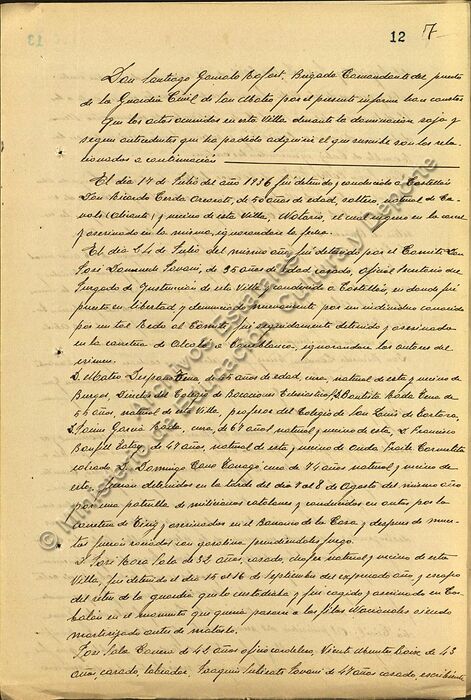 12 7
Don Santiago Gonzalo Rofort, Brigada Comandante del puesto
de la Guardia Civil de San Mateo por el presente informe hace constar
Que los actos ocurridos en esta Villa durante la dominación roja y
según antecedentes que ha podido adquirir el que suscribe son los rela-
cionados a continuación
El dia 17 de Julio del año 1936 fué detenido y conducido a Castellón
Don Ricardo Cerdá de 50 años de edad, soltero, natural de
(Alicante) y vecino de esta Villa, Notario, el cual ingresó en la carcel
y asesinado en la misma, ignorandose la fecha.
El dia 24 de Julio del mismo año fué detenido por el Comité Don
José de 35 años de edad casado, Oficial Secretario del
Juzgado de de esta Villa y conducido a Castellón, en donde fué
puesto en libertad y denunciado nuevamente por un individuo conocido
por un tal al Comité, fué seguidamente detenido y asesinado
en la carretera de Alcalá a ignorandose los autores del
crimen.
D. Mateo de 55 años de edad, cura, natural de esta y vecino de
Burgos, Director del Colegio de Vocaciones Eclesiasticas, D. Bautista
55 años, natural de esta Villa, profesor del Colegio de San Luis de Tortosa,
D. Jaime García cura, de 67 años natural y vecino de esta, D. Francisco
Bonfill de 47 años, natural de esta y vecino de Onda, Fraile Carmelita
calzado, D. Domingo cura de 74 años natural y vecino de
esta, fueron detenidos en la tarde del dia 7 al 8 de Agosto del mismo año
por una patrulla de milicianos catalanes y conducidos en autos por la
carretera de Tirig y asesinados en el Barranco de la y despues de muer-
tos fueron rociados con gasolina prendiendoles fuego.
D. José Sala de 32 años, casado, chofer natural y vecino de esta
Villa, fué detenido el dia 15 al 16 de Septiembre del expresado año y escapó
del reten de la guardia que lo custodiaba y fué cogido y asesinado en
en el momento que queria pasarse a las filas Nacionales siendo
martirizado antes de matarlo.
José Sala de 42 años oficio cordelero, Vicente de 43
años, casado, labrador, Joaquin de 47 años casado, escribiente
© Ministerio de Educación, Cultura y Deporte
Archivos Estatales